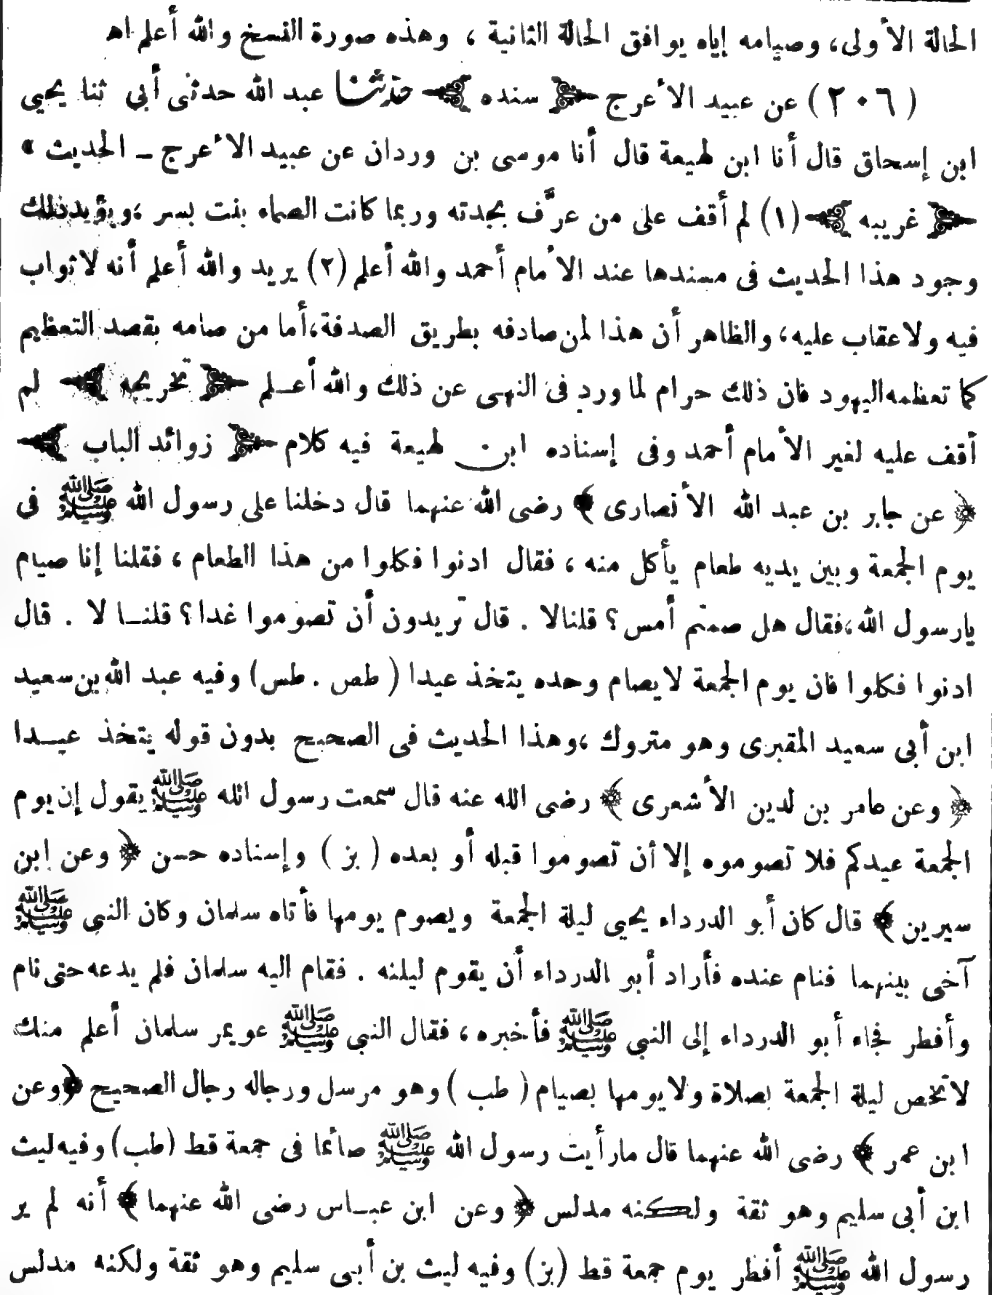 الحالة الأولى، وصيامه إياه يوافق الحالة الثانية، وهذه صورة النسخ والله أعلم اه
(٢٠٦) عن عبيد الأعرج ﴿ سنده ﴾ حدثنا عبد الله حدثنى أبى ثنا يحيى
ابن إسحاق قال أنا ابن لهيعة قال أنا موسى بن وردان عن عبيد الأعرج ـ الحديث»
﴿ غريبه ﴾ (١) لم أقف على من عرَّف بجدته وربما كانت الصماء بنت بسر، ويؤيد ذلك
وجود هذا الحديث فى مسندها عند الأمام أحمد والله أعلم (٢) يريد والله أعلم أنه لا ثواب
فيه ولا عقاب عليه، والظاهر أن هذا لمن صادفه بطريق الصدفة، أما من صامه بقصد التعظيم
كما تعظمه اليهود فان ذلك حرام لما ورد فى النهى عن ذلك والله أعـلم ﴿ تخريجه ﴾ لم
أقف عليه لغير الأمام أحمد وفى إسناده ابن لهيعة فيه كلام ﴿ زوائد الباب ﴾
﴿ عن جابر بن عبد الله الأنصارى ﴾ رضى الله عنهما قال دخلنا على رسول الله ﷺ فى
يوم الجمعة وبين يديه طعام يأكل منه، فقال ادنوا فكلوا من هذا الطعام، فقلنا إنا صيام
يا رسول الله، فقال هل صمتم أمس؟ قلنا لا . قال تريدون أن تصوموا غدا؟ قلنـا لا . قال
ادنوا فكلوا فان يوم الجمعة لا يصام وحده يتخذ عيدا ( طص . طس) وفيه عبد الله بن سعيد
ابن أبى سعيد المقبرى وهو متروك، وهذا الحديث فى الصحيح بدون قوله يتخذ عيـدا
﴿ وعن عامر بن لدين الأشعرى ﴾ رضى الله عنه قال سمعت رسول الله ﷺ يقول إن يوم
الجمعة عيدكم فلا تصوموه إلا أن تصوموا قبله أو بعده ( بز ) وإسناده حسن ﴿ وعن ابن
سيرين ﴾ قال كان أبو الدرداء يحيى ليلة الجمعة ويصوم يومها فأتاه سلمان وكان النبى ﷺ
آخى بينهما فنام عنده فأراد أبو الدرداء أن يقوم ليلته . فقام اليه سلمان فلم يدعه حتى نام
وأفطر فجاء أبو الدرداء إلى النبى ﷺ فأخبره، فقال النبى ﷺ عويمر سلمان أعلم منك
لا تخص ليلة الجمعة بصلاة ولا يومها بصيام ( طب ) وهو مرسل ورجاله رجال الصحيح ﴿ وعن
ابن عمر ﴾ رضى الله عنهما قال ما رأيت رسول الله ﷺ صائما فى جمعة قط (طب) وفيه ليث
ابن أبى سليم وهو ثقة ولكنه مدلس ﴿ وعن ابن عبـاس رضى الله عنهما ﴾ أنه لم ير
رسول الله ﷺ أفطر يوم جمعة قط (بز) وفيه ليث بن أبى سليم وهو ثقة ولكنه مدلس